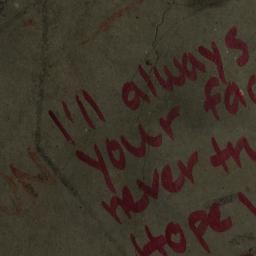 I'll always
your fac
never tr
Hope